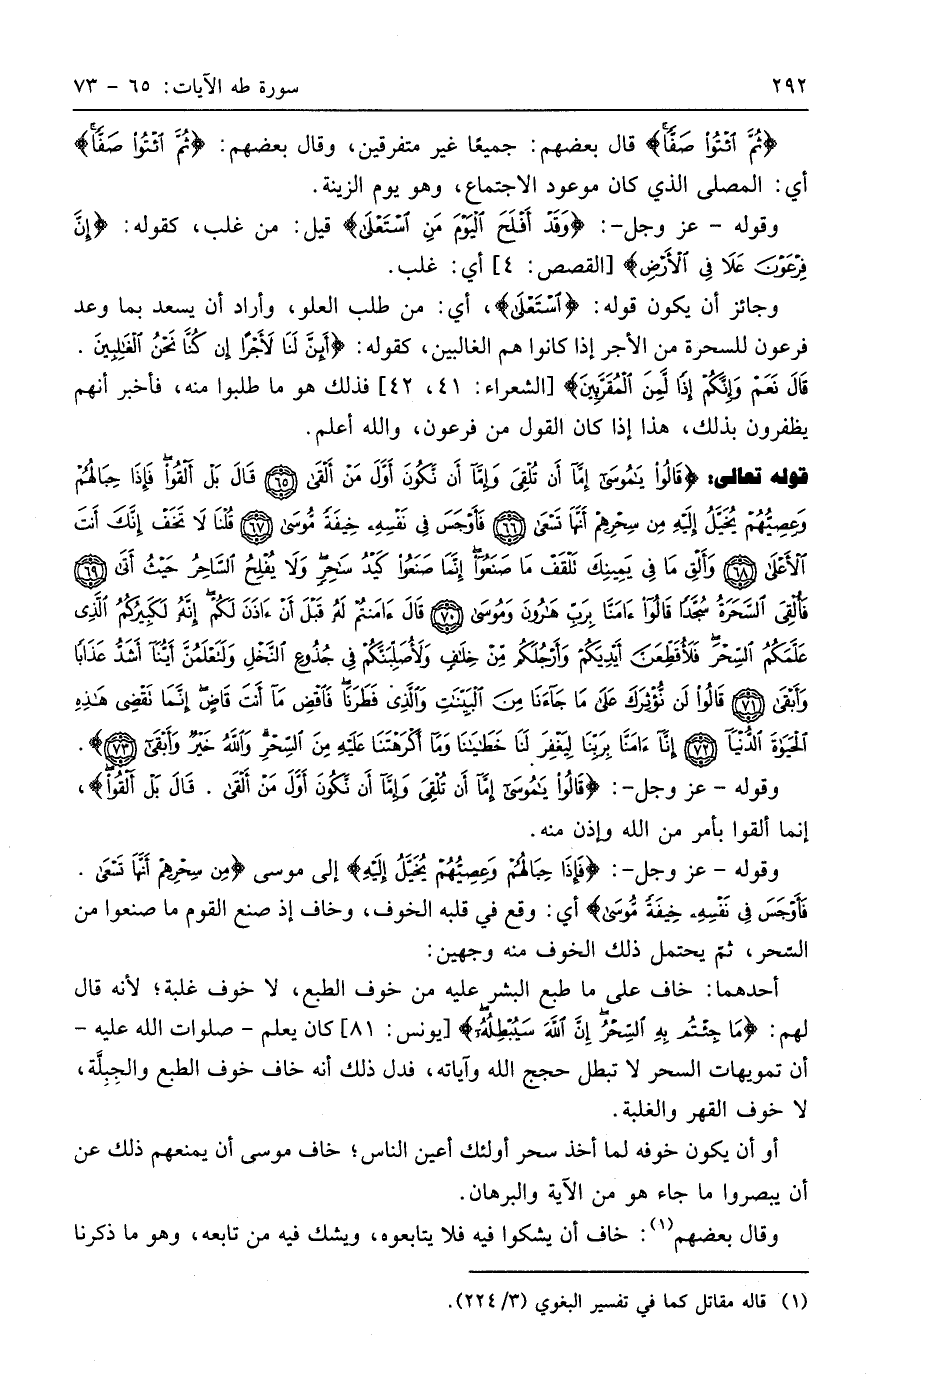 ٢٩٢ سورة طه الآيات: ٦٥ - ٧٣
﴿ثُمَّ ٱئْتُوا۟ صَفًّاۚ﴾ قال بعضهم: جميعًا غير متفرقين، وقال بعضهم: ﴿ثُمَّ ٱئْتُوا۟ صَفًّاۚ﴾
أي: المصلى الذي كان موعود الاجتماع، وهو يوم الزينة.
وقوله - عز وجل-: ﴿وَقَدْ أَفْلَحَ ٱلْيَوْمَ مَنِ ٱسْتَعْلَىٰ﴾ قيل: من غلب، كقوله: ﴿إِنَّ
فِرْعَوْنَ عَلَا فِى ٱلْأَرْضِ﴾ [القصص: ٤] أي: غلب.
وجائز أن يكون قوله: ﴿ٱسْتَعْلَىٰ﴾، أي: من طلب العلو، وأراد أن يسعد بما وعد
فرعون للسحرة من الأجر إذا كانوا هم الغالبين، كقوله: ﴿أَئِنَّ لَنَا لَأَجْرًا إِن كُنَّا نَحْنُ ٱلْغَٰلِبِينَ .
قَالَ نَعَمْ وَإِنَّكُمْ إِذًا لَّمِنَ ٱلْمُقَرَّبِينَ﴾ [الشعراء: ٤١، ٤٢] فذلك هو ما طلبوا منه، فأخبر أنهم
يظفرون بذلك، هذا إذا كان القول من فرعون، والله أعلم.
قوله تعالى: ﴿قَالُوا۟ يَٰمُوسَىٰٓ إِمَّآ أَن تُلْقِىَ وَإِمَّآ أَن نَّكُونَ أَوَّلَ مَنْ أَلْقَىٰ ٦٥ قَالَ بَلْ أَلْقُوا۟ۖ فَإِذَا حِبَالُهُمْ
وَعِصِيُّهُمْ يُخَيَّلُ إِلَيْهِ مِن سِحْرِهِمْ أَنَّهَا تَسْعَىٰ ٦٦ فَأَوْجَسَ فِى نَفْسِهِۦ خِيفَةً مُّوسَىٰ ٦٧ قُلْنَا لَا تَخَفْ إِنَّكَ أَنتَ
ٱلْأَعْلَىٰ ٦٨ وَأَلْقِ مَا فِى يَمِينِكَ تَلْقَفْ مَا صَنَعُوٓا۟ۖ إِنَّمَا صَنَعُوا۟ كَيْدُ سَٰحِرٍۖ وَلَا يُفْلِحُ ٱلسَّاحِرُ حَيْثُ أَتَىٰ ٦٩
فَأُلْقِىَ ٱلسَّحَرَةُ سُجَّدًا قَالُوٓا۟ ءَامَنَّا بِرَبِّ هَٰرُونَ وَمُوسَىٰ ٧٠ قَالَ ءَامَنتُمْ لَهُۥ قَبْلَ أَنْ ءَاذَنَ لَكُمْۖ إِنَّهُۥ لَكَبِيرُكُمُ ٱلَّذِى
عَلَّمَكُمُ ٱلسِّحْرَۖ فَلَأُقَطِّعَنَّ أَيْدِيَكُمْ وَأَرْجُلَكُم مِّنْ خِلَٰفٍ وَلَأُصَلِّبَنَّكُمْ فِى جُذُوعِ ٱلنَّخْلِ وَلَتَعْلَمُنَّ أَيُّنَآ أَشَدُّ عَذَابًا
وَأَبْقَىٰ ٧١ قَالُوا۟ لَن نُّؤْثِرَكَ عَلَىٰ مَا جَآءَنَا مِنَ ٱلْبَيِّنَٰتِ وَٱلَّذِى فَطَرَنَاۖ فَٱقْضِ مَآ أَنتَ قَاضٍۖ إِنَّمَا تَقْضِى هَٰذِهِ
ٱلْحَيَوٰةَ ٱلدُّنْيَآ ٧٢ إِنَّآ ءَامَنَّا بِرَبِّنَا لِيَغْفِرَ لَنَا خَطَٰيَٰنَا وَمَآ أَكْرَهْتَنَا عَلَيْهِ مِنَ ٱلسِّحْرِۗ وَٱللَّهُ خَيْرٌ وَأَبْقَىٰٓ ٧٣﴾.
وقوله - عز وجل-: ﴿قَالُوا۟ يَٰمُوسَىٰٓ إِمَّآ أَن تُلْقِىَ وَإِمَّآ أَن نَّكُونَ أَوَّلَ مَنْ أَلْقَىٰ . قَالَ بَلْ أَلْقُوا۟ۖ﴾،
إنما ألقوا بأمر من الله وإذن منه.
وقوله - عز وجل-: ﴿فَإِذَا حِبَالُهُمْ وَعِصِيُّهُمْ يُخَيَّلُ إِلَيْهِ﴾ إلى موسى ﴿مِن سِحْرِهِمْ أَنَّهَا تَسْعَىٰ .
فَأَوْجَسَ فِى نَفْسِهِۦ خِيفَةً مُّوسَىٰ﴾ أي: وقع في قلبه الخوف، وخاف إذ صنع القوم ما صنعوا من
السحر، ثم يحتمل ذلك الخوف منه وجهين:
أحدهما: خاف على ما طبع البشر عليه من خوف الطبع، لا خوف غلبة؛ لأنه قال
لهم: ﴿مَا جِئْتُم بِهِ ٱلسِّحْرُۖ إِنَّ ٱللَّهَ سَيُبْطِلُهُۥٓۖ﴾ [يونس: ٨١] كان يعلم - صلوات الله عليه -
أن تمويهات السحر لا تبطل حجج الله وآياته، فدل ذلك أنه خاف خوف الطبع والجِبِلَّة،
لا خوف القهر والغلبة.
أو أن يكون خوفه لما أخذ سحر أولئك أعين الناس؛ خاف موسى أن يمنعهم ذلك عن
أن يبصروا ما جاء هو من الآية والبرهان.
وقال بعضهم(١): خاف أن يشكوا فيه فلا يتابعوه، ويشك فيه من تابعه، وهو ما ذكرنا
(١) قاله مقاتل كما في تفسير البغوي (٣/٢٢٤).